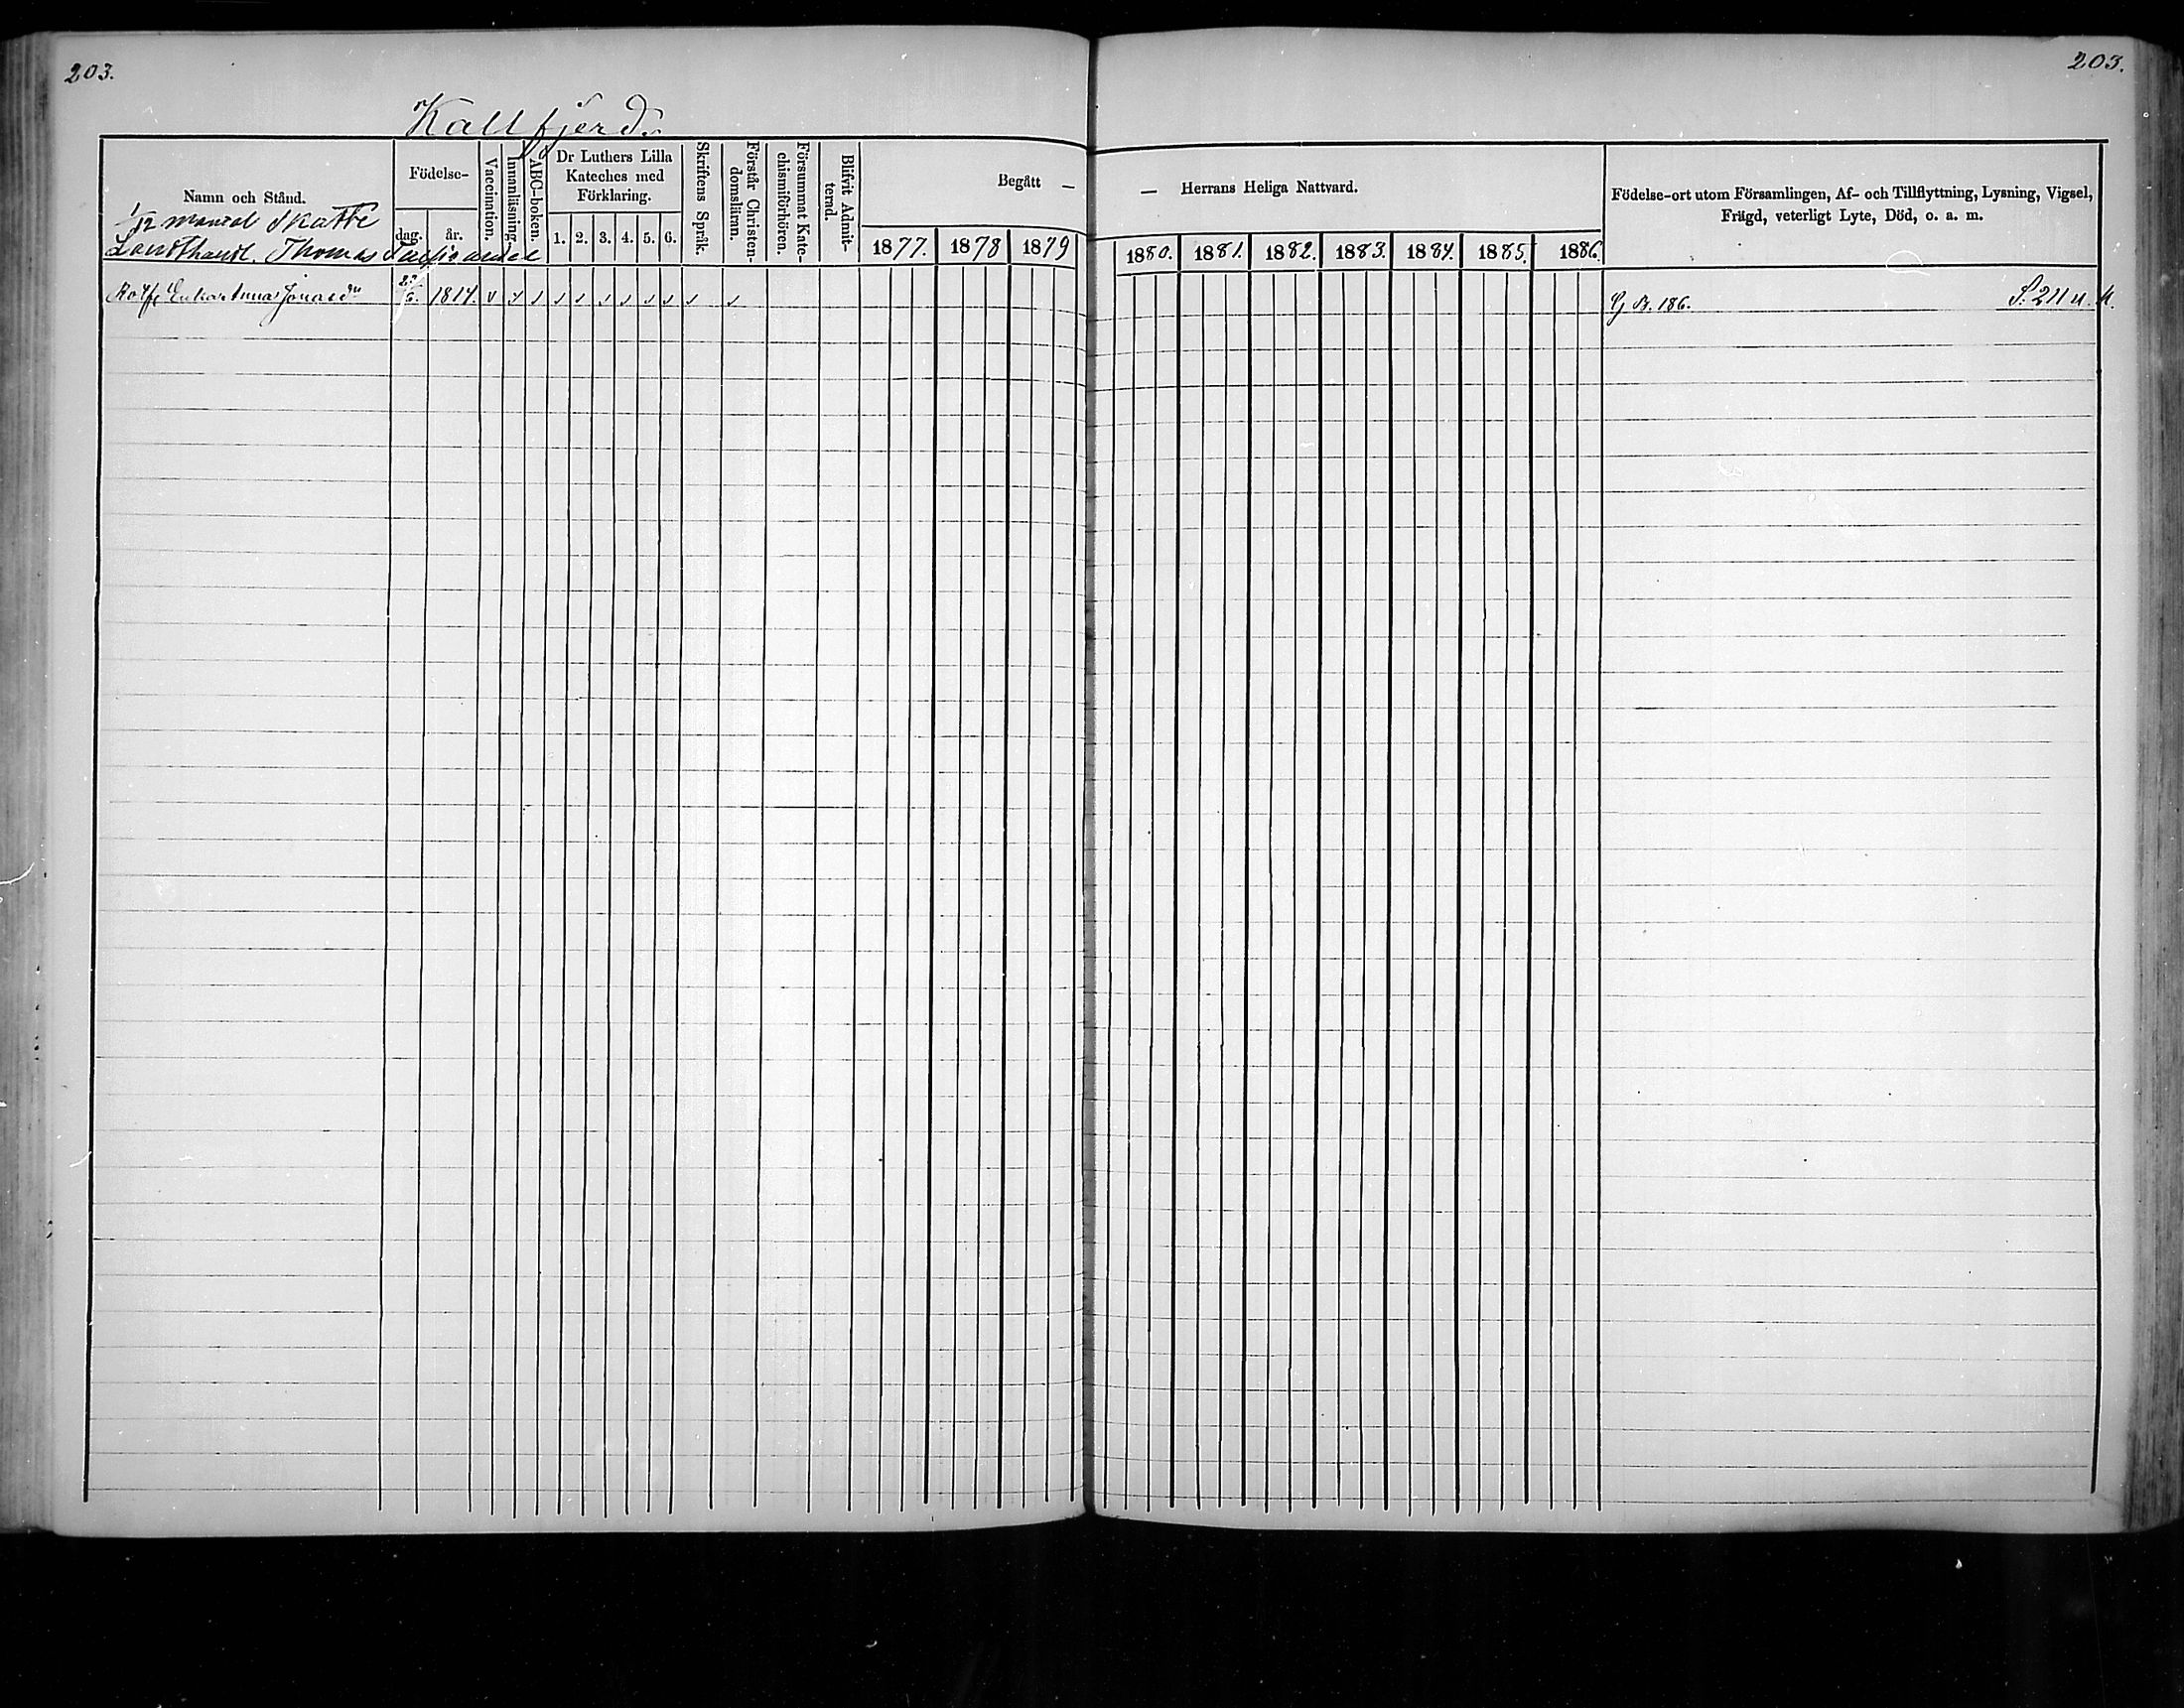 203.
203.
Kallfjerd.
Namn och Stånd.
1/12 mantal Skatte
Landthandl. Thomas
Födelse-
dag.
år.
Vaccination.
Innanläsning.
ABC-boken.
Dr Luthers Lilla
Kateches med
Förklaring.
1. 2. 3. 4. 5. 6.
Skriftens Språk.
Förstår Christen-
domsläran.
Försummat Kate-
chismiförhören.
Blifvit Admit-
terad.
Begått —
1877. 1878 1879
— Herrans Heliga Nattvard.
1880. 1881. 1882. 1883. 1884. 1885. 1886.
Födelse-ort utom Församlingen, Af- och Tillflyttning, Lysning, Vigsel,
Frägd, veterligt Lyte, Död, o. a. m.
Enkan Anna Jonasdr 1814. B. 186. S. 211 u. M.